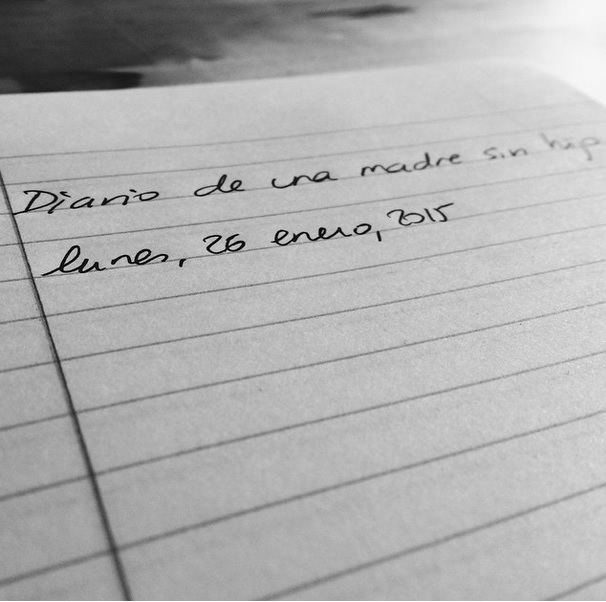 Diario de una madre sin hijo
lunes, 26 enero, 2015